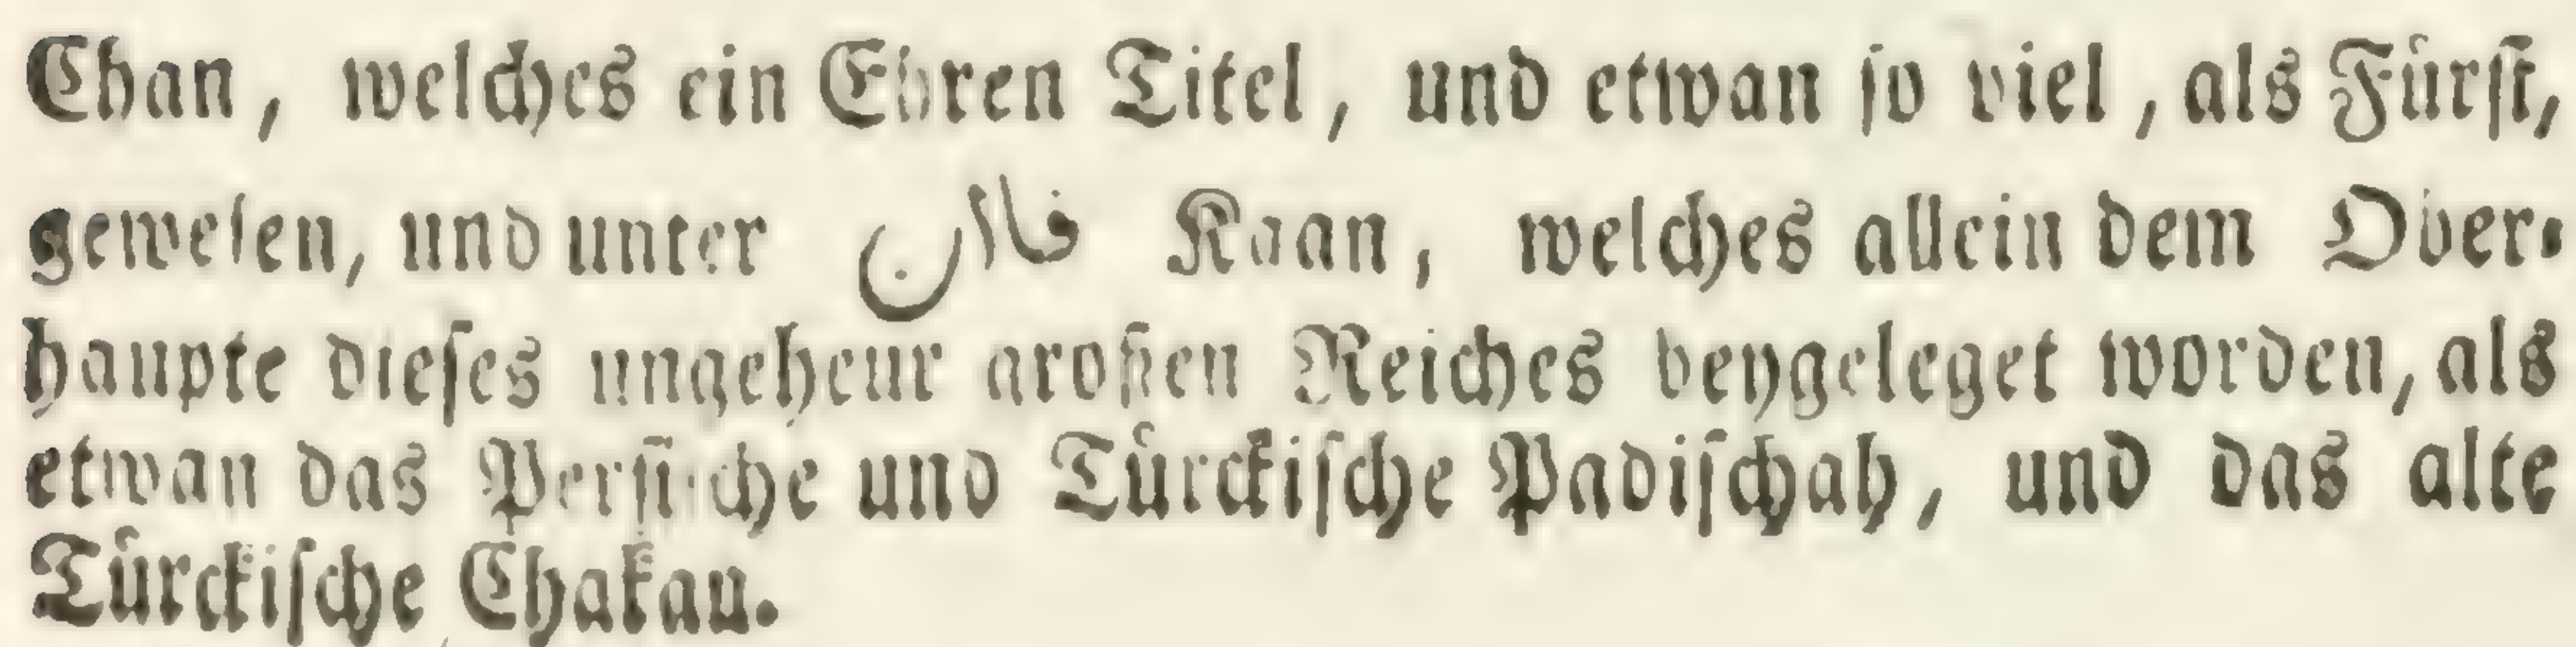 Chan, welches ein Ehren Titel, und etwan so viel, als Fürst,
gewesen, und unter قاان Kaan, welches allein dem Ober-
haupte dieses ungeheur großen Reiches beygeleget worden, als
etwan das Persische und Türckische Padischah, und das alte
Türckische Chakan.